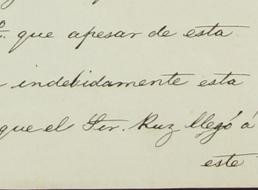 o. que apesar de esta
indebidamente esta
que el Sor. Ruz llegó á
este